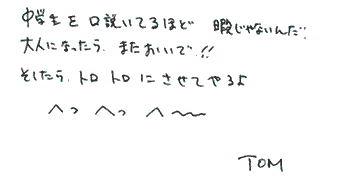 中学生を口説いてるほど 暇じゃないんだ!!
大人になったら、またおいで!!
そしたら、トロトロにさせてやるよ
へっ へっ へ〜〜
TOM